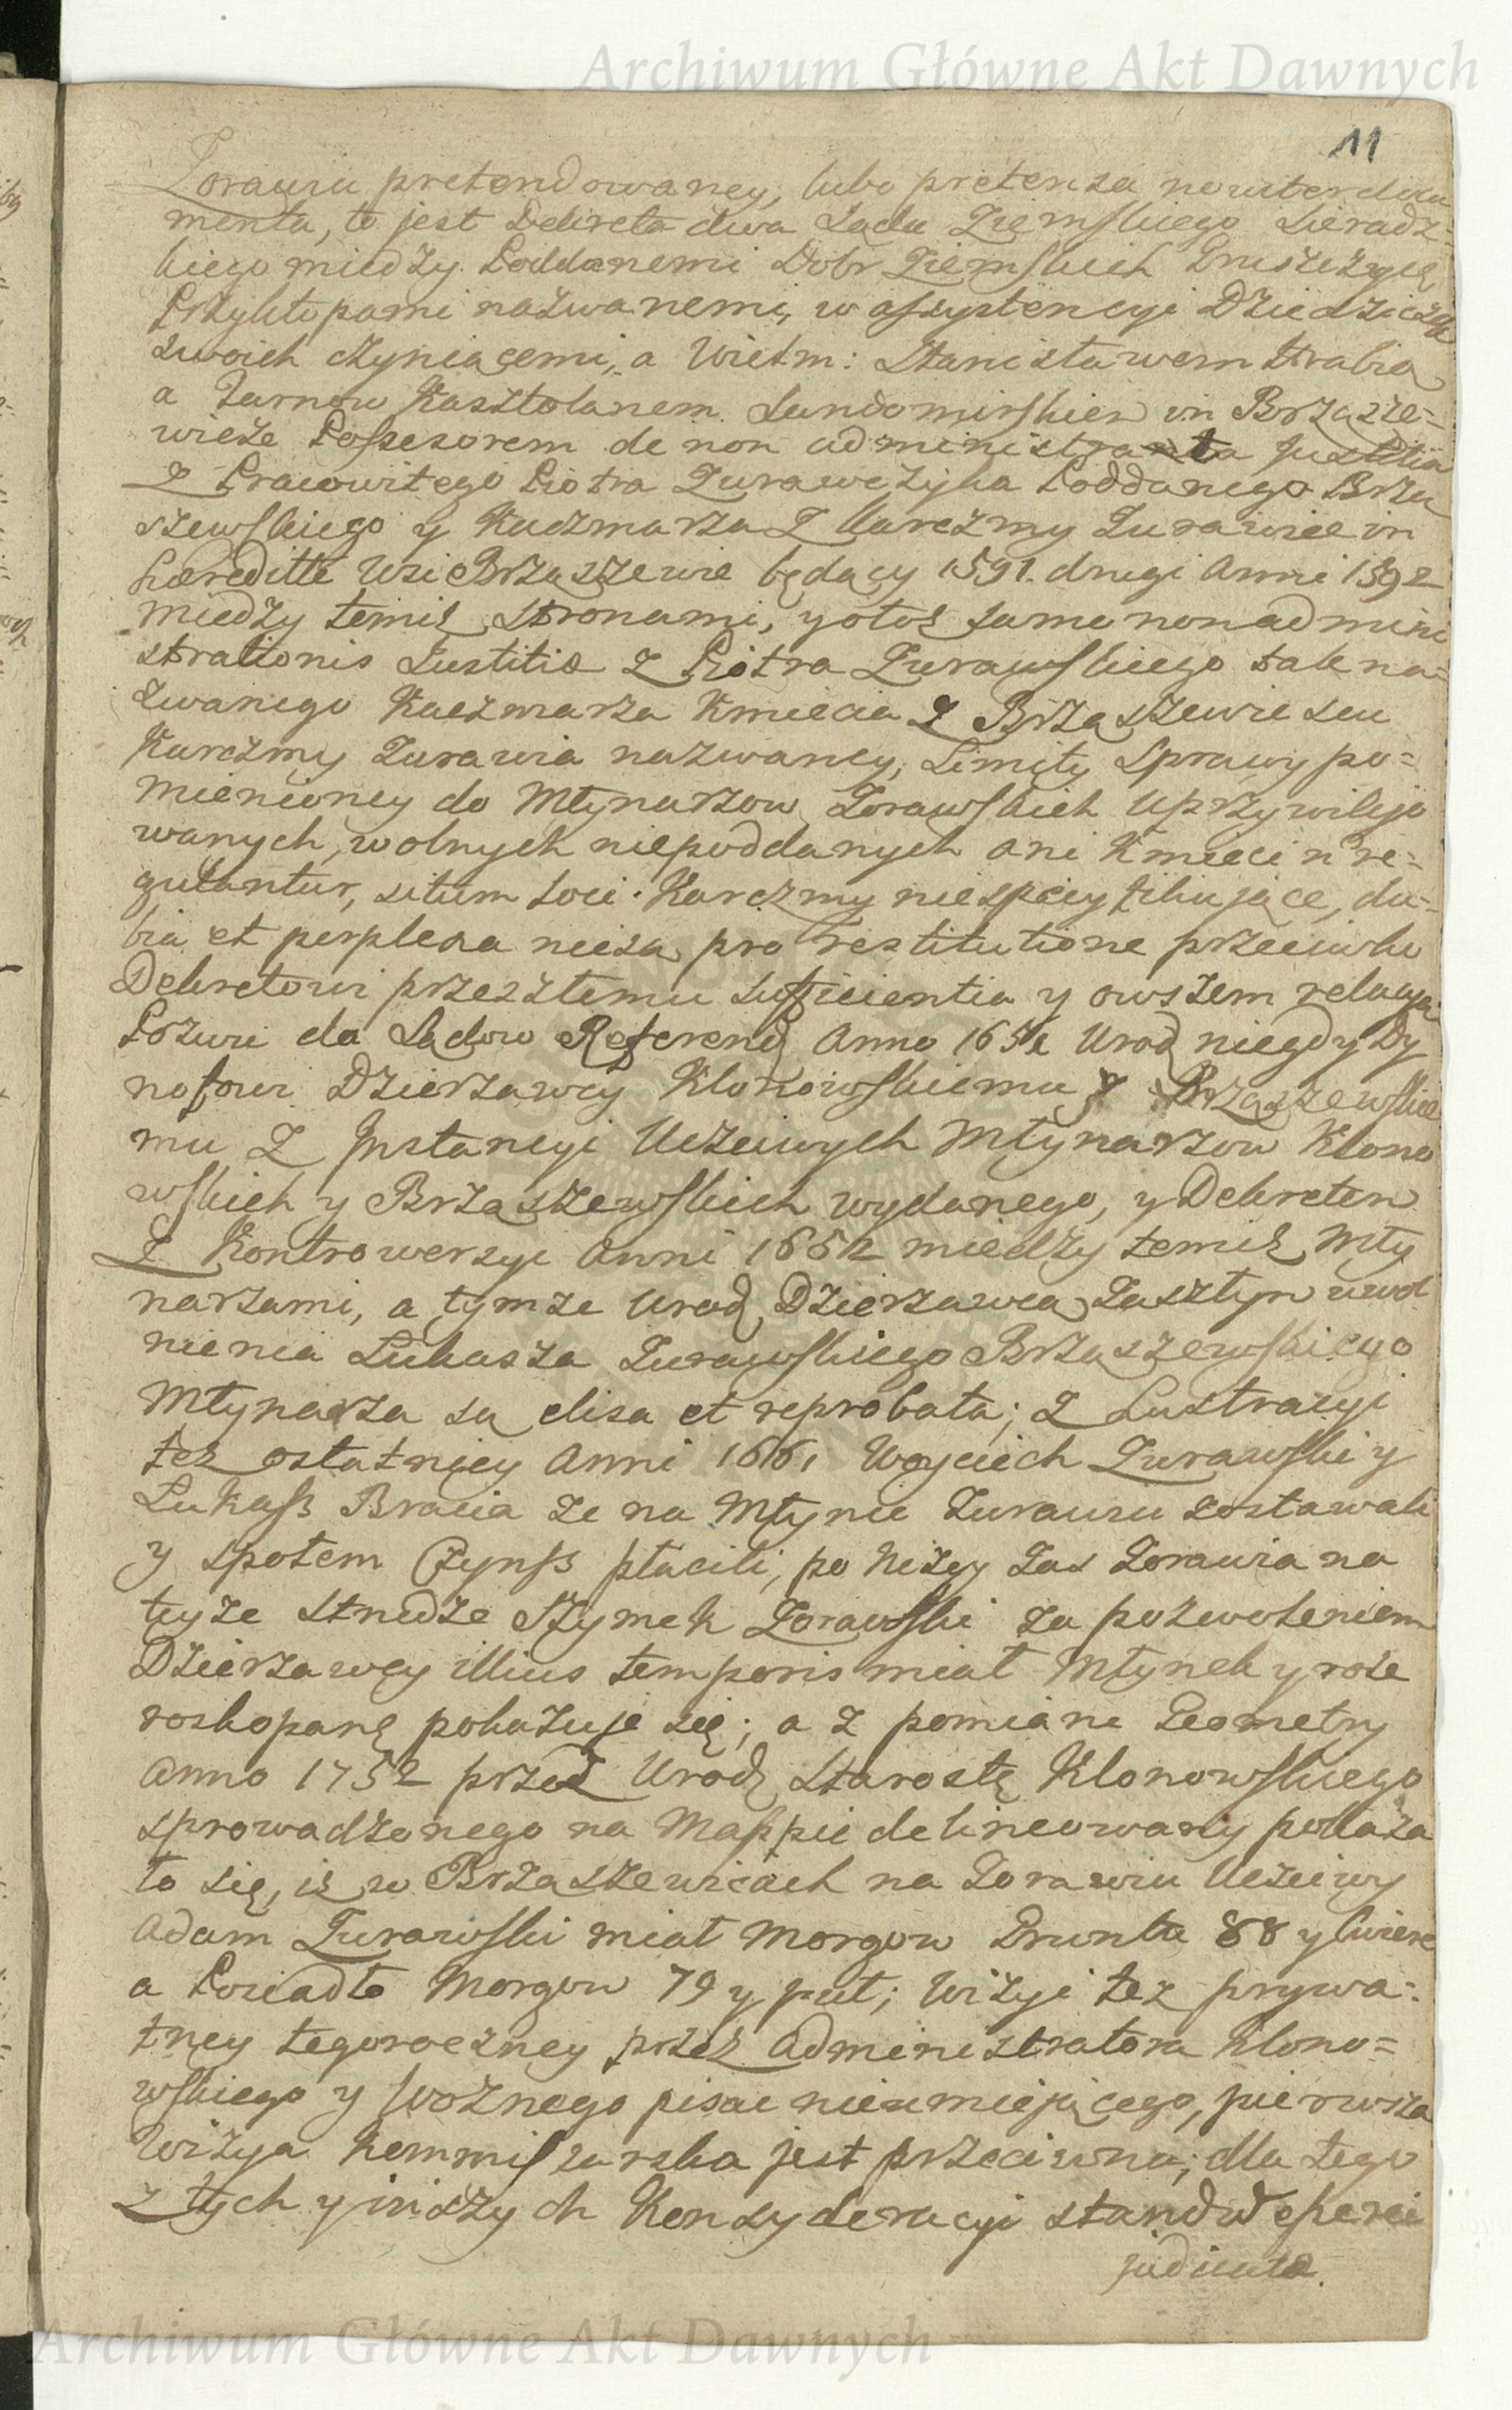 Archiwum Główne Akt Dawnych
11
Zorawiu pretendowaney, lubo pretensa noviter docu
menta, to jest Dekreta dwa Sądu Ziemskiego Sieradz-
kiego miedzy Poddanemi Dobr Ziemskich
Przykłopami nazwanemi, w assystencyi Dziedzicow
swoich czyniącemi, a Wielm: Stanisławem Hrabią
a Tarnow Kasztolanem Sandomirskiem in Brząsze-
wice Possesorem de non administrata Justitia
z Pracowitego Piotra Zurawczyka Poddanego Brzą
szewskiego y Kaczmarza z Karczmy Zurawiec in
hæreditte Wsi Brząszewie będący 1591. drugi Anni 1592
miedzy temiż Stronami, y otoż samo non admini
strationis Justitiæ z Piotra Zurawskiego tak na-
zwanego Kaczmarza Kmiecia z Brząszewic seu
Karczmy Zurawia nazwaney, Limity Sprawy po-
mienioney do Młynarzow Zorawskich Uprzywilejo
wanych, wolnych niepoddanych ani Kmieci n re-
gulantur, situm loci Karczmy niespecyfikujące, du-
bia et perplexa niesą pro restitutione przeciwko
Dekretowi przeszłemu sufficientia y owszem relacya
Pozwu do Sądow Referend Anno 1651 Urod niegdy Dy
nofowi Dzierzawcy Klonowskiemu y Brząszewskie
mu z Instancyi Uczciwych Młynarzow Klono
wskich y Brząszewskich wydanego, y Dekretem
z Kontrowersyi Anni 1652 miedzy temiż Mły
narzami, a tymże Urod Dzierzawcą zasztym uwol
nienia Łukasza Zurawskiego Brząszewskiego
Młynarza są elisa et reprobata; z Lustracyi
tez ostatniey Anni 1661 Woyciech Zurawski y
Łukasz Bracia ze na Młynie Zurawiu zostawali
y społem Czynsz płacili, po niżey zas Zorawia na
teyże Strudze Szymek Zorawski za pozwoleniem
Dzierzawcy illius temporis miał Młynek y role
roskopaną pokazuje się; a z pomiaru Geometry
Anno 1752 przez Urod Starostę Klonowskiego
sprowadzonego na Mappie delineowany pokaza
ło się, iż w Brząszewicach na Zorawiu Uczciwy
Adam Zurawski miał Morgow Gruntu 88 y ćwierć
a Posiadło Morgow 79 y puł; Wizyi tez prywa-
tney tegoroczney przez Administratora Klono-
wskiego y Woznego pisac nieumiejącego, pierwsza
Wizya Kommissarska jest przeciwna; dla tego
z tych y inszych Konsyderacyi stand w
judicata.
Archiwum Główne Akt Dawnych